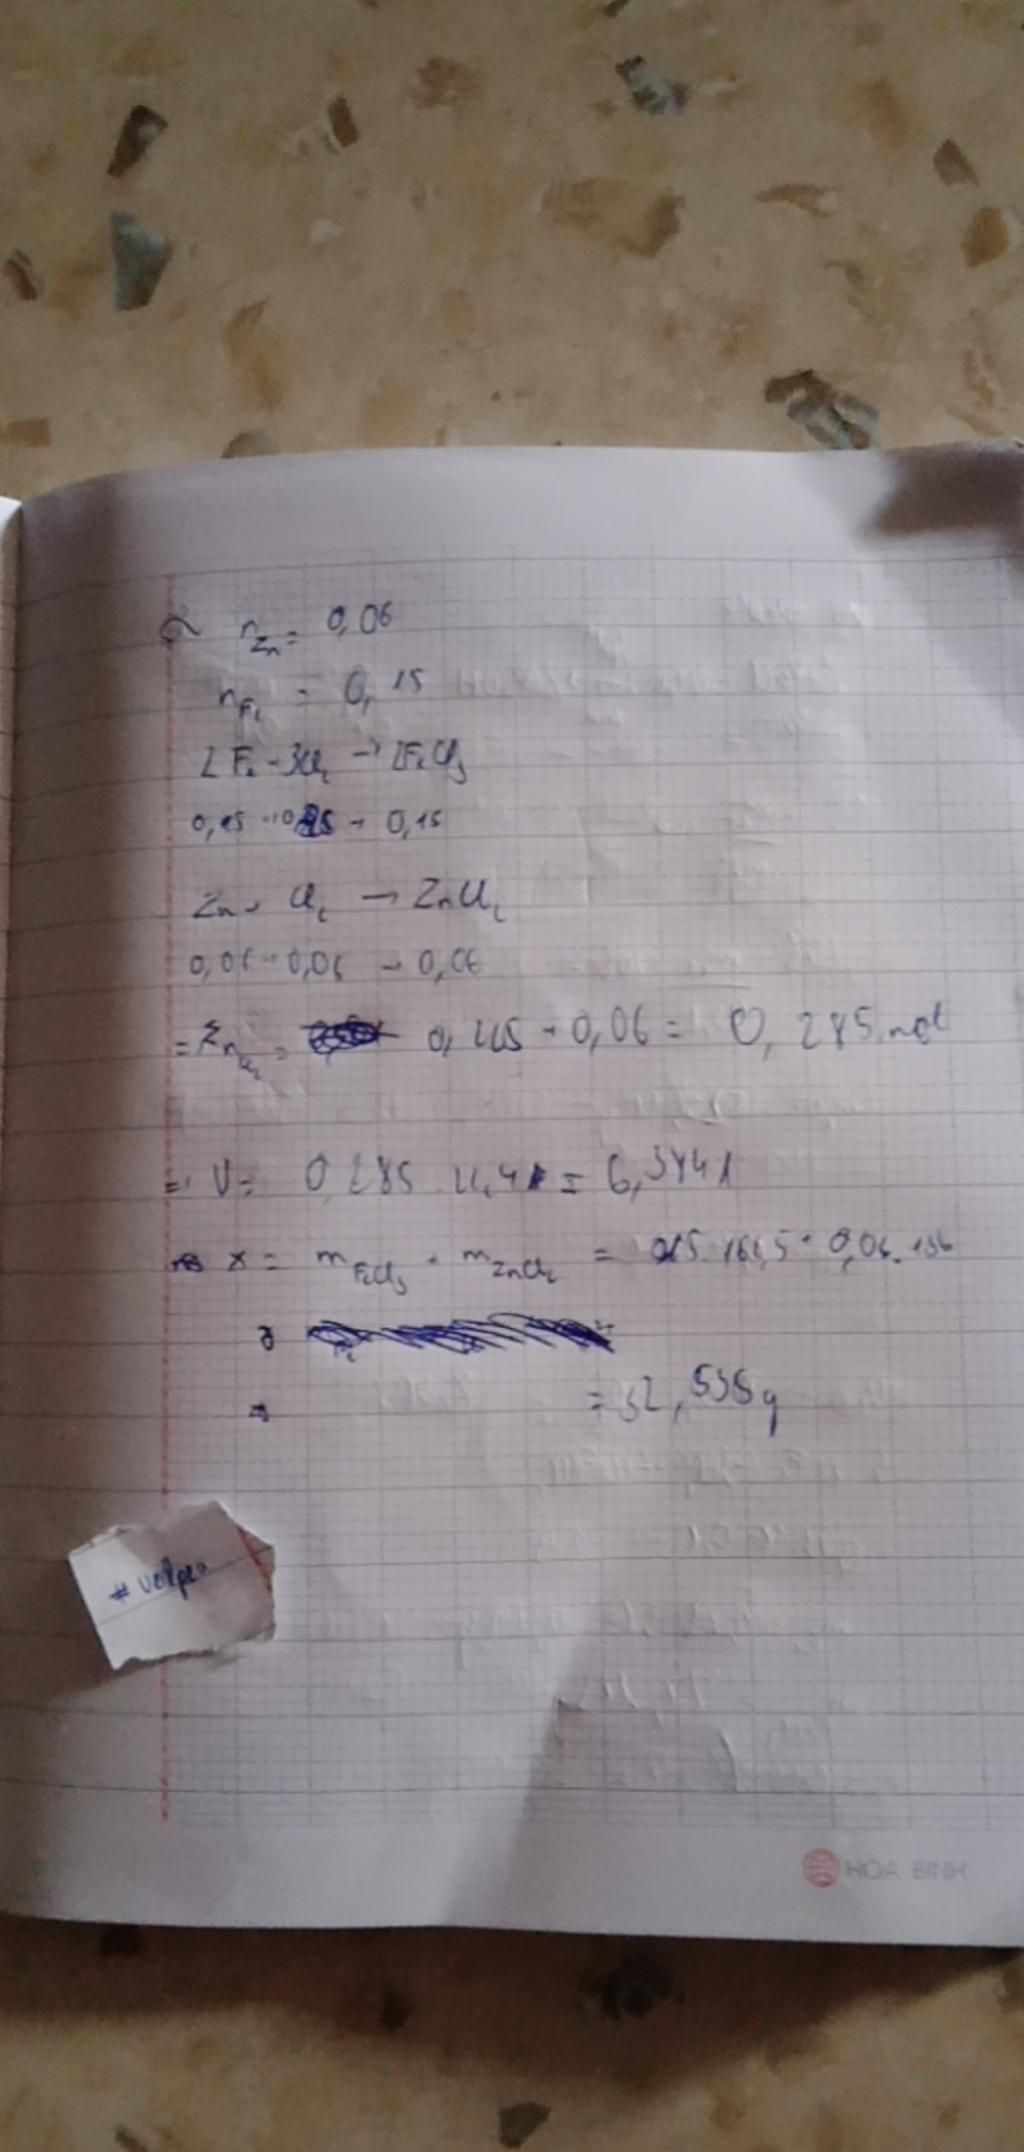 n Zn = 0,06
n Fe = 0,15
2Fe + 3Cl2 → 2FeCl3
0,15 → → 0,15
Zn + Cl2 → ZnCl2
0,06 → 0,06 → 0,06
= Σn Cl2 = 0,225 + 0,06 = 0,285 mol
=> V = 0,285 . 22,4 = 6,384 l
x = m FeCl3 + m ZnCl2 = 0,15 . 162,5 + 0,06 . 136
= 32,535g
# Velpen
HÒA BÌNH